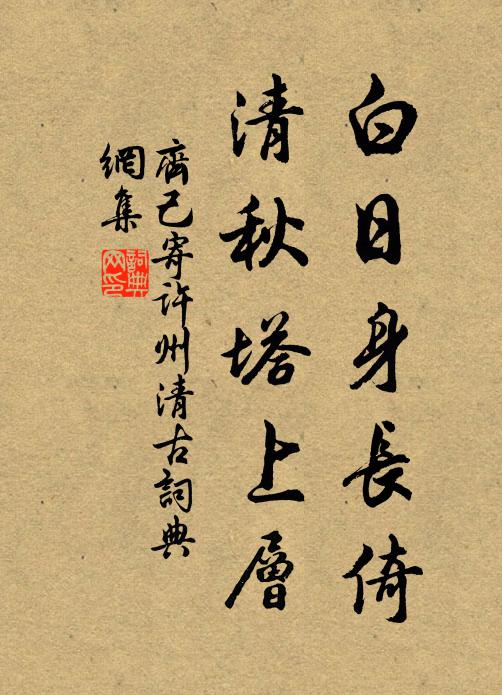 白日身長倚
清秋塔上層
齊己寄許州清古詞典
網集
詞典
网印